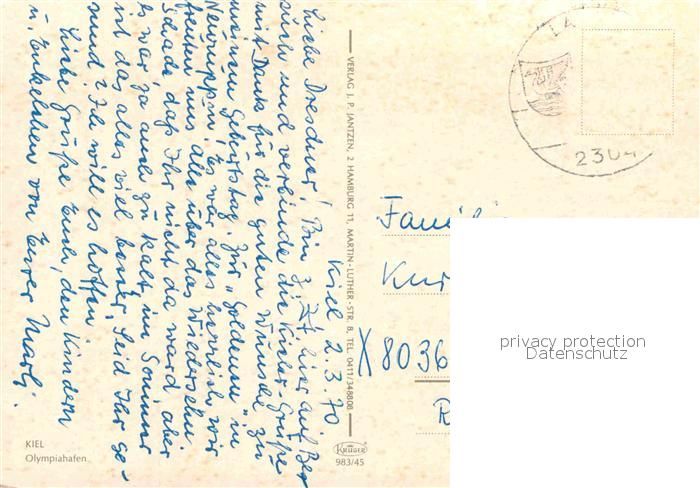 Kiel 2.3.70.
Liebe Dresdner! Bin z. Zt. hier auf Be-
such und verbinde die Kieler Grüße
mit Dank für die guten Wünsche zu
meinem Geburtstag. Zur "Goldenen" in
Neuruppin, Es war alles herrlich, wir
freuten uns alle über das Wiedersehn
Schade, daß Ihr nicht da ward, aber
es war ja auch zu kalt, im Sommer
ist das alles viel besser. Seid Ihr ge-
sund? Ich will es hoffen.
Liebe Grüße Euch, den Kindern
u. Enkelchen von Eurer
VERLAG J. P. JANTZEN, 2 HAMBURG 11, MARTIN-LUTHER-STR. 8, TEL. 0411/348808
KRÜGER
983/45
KIEL
Olympiahafen
2304
Familie
X 8036
privacy protection
Datenschutz